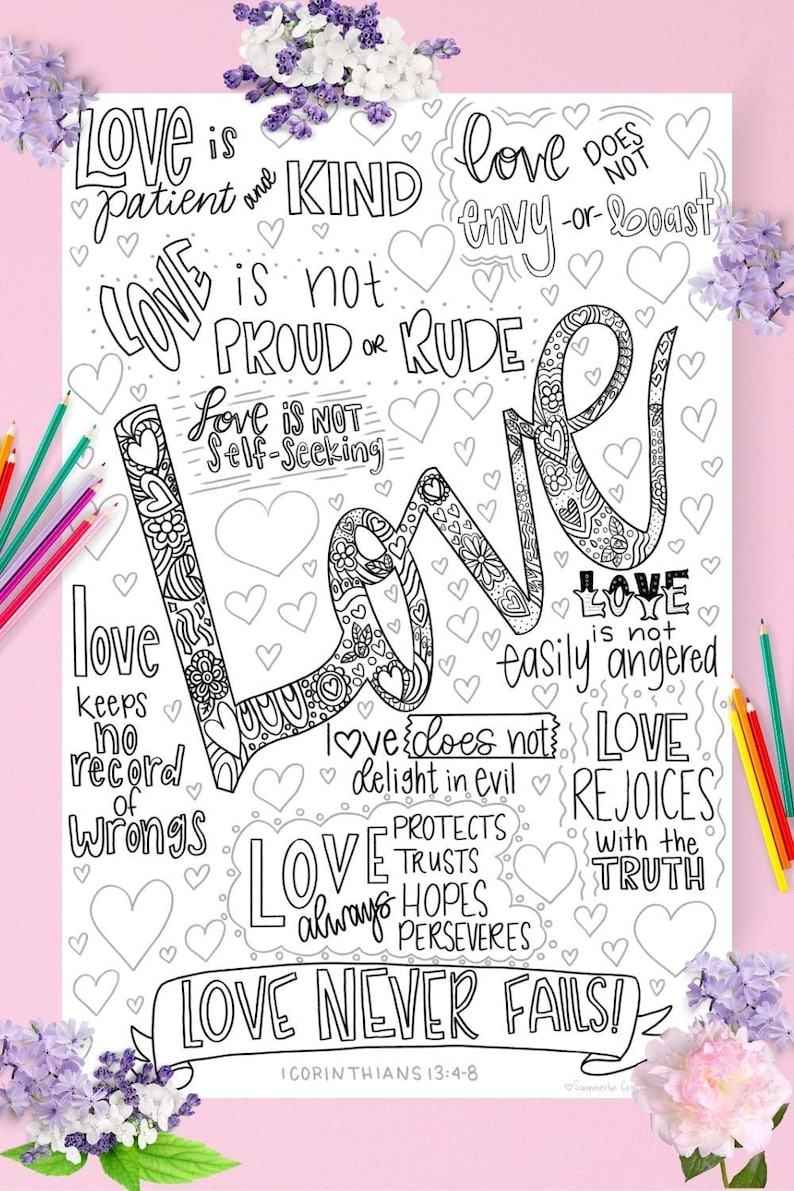 LOVE is
patient and KIND
love DOES
NOT
envy -or- boast
LOVE is not
PROUD OR RUDE
Love is NOT
Self-Seeking
Love
LOVE
is not
easily angered
love
keeps
no
record
of
wrongs
love does not
delight in evil
LOVE
REJOICES
with the
TRUTH
LOVE always
PROTECTS
TRUSTS
HOPES
PERSEVERES
LOVE NEVER FAILS!
1 CORINTHIANS 13:4-8
Summerlin